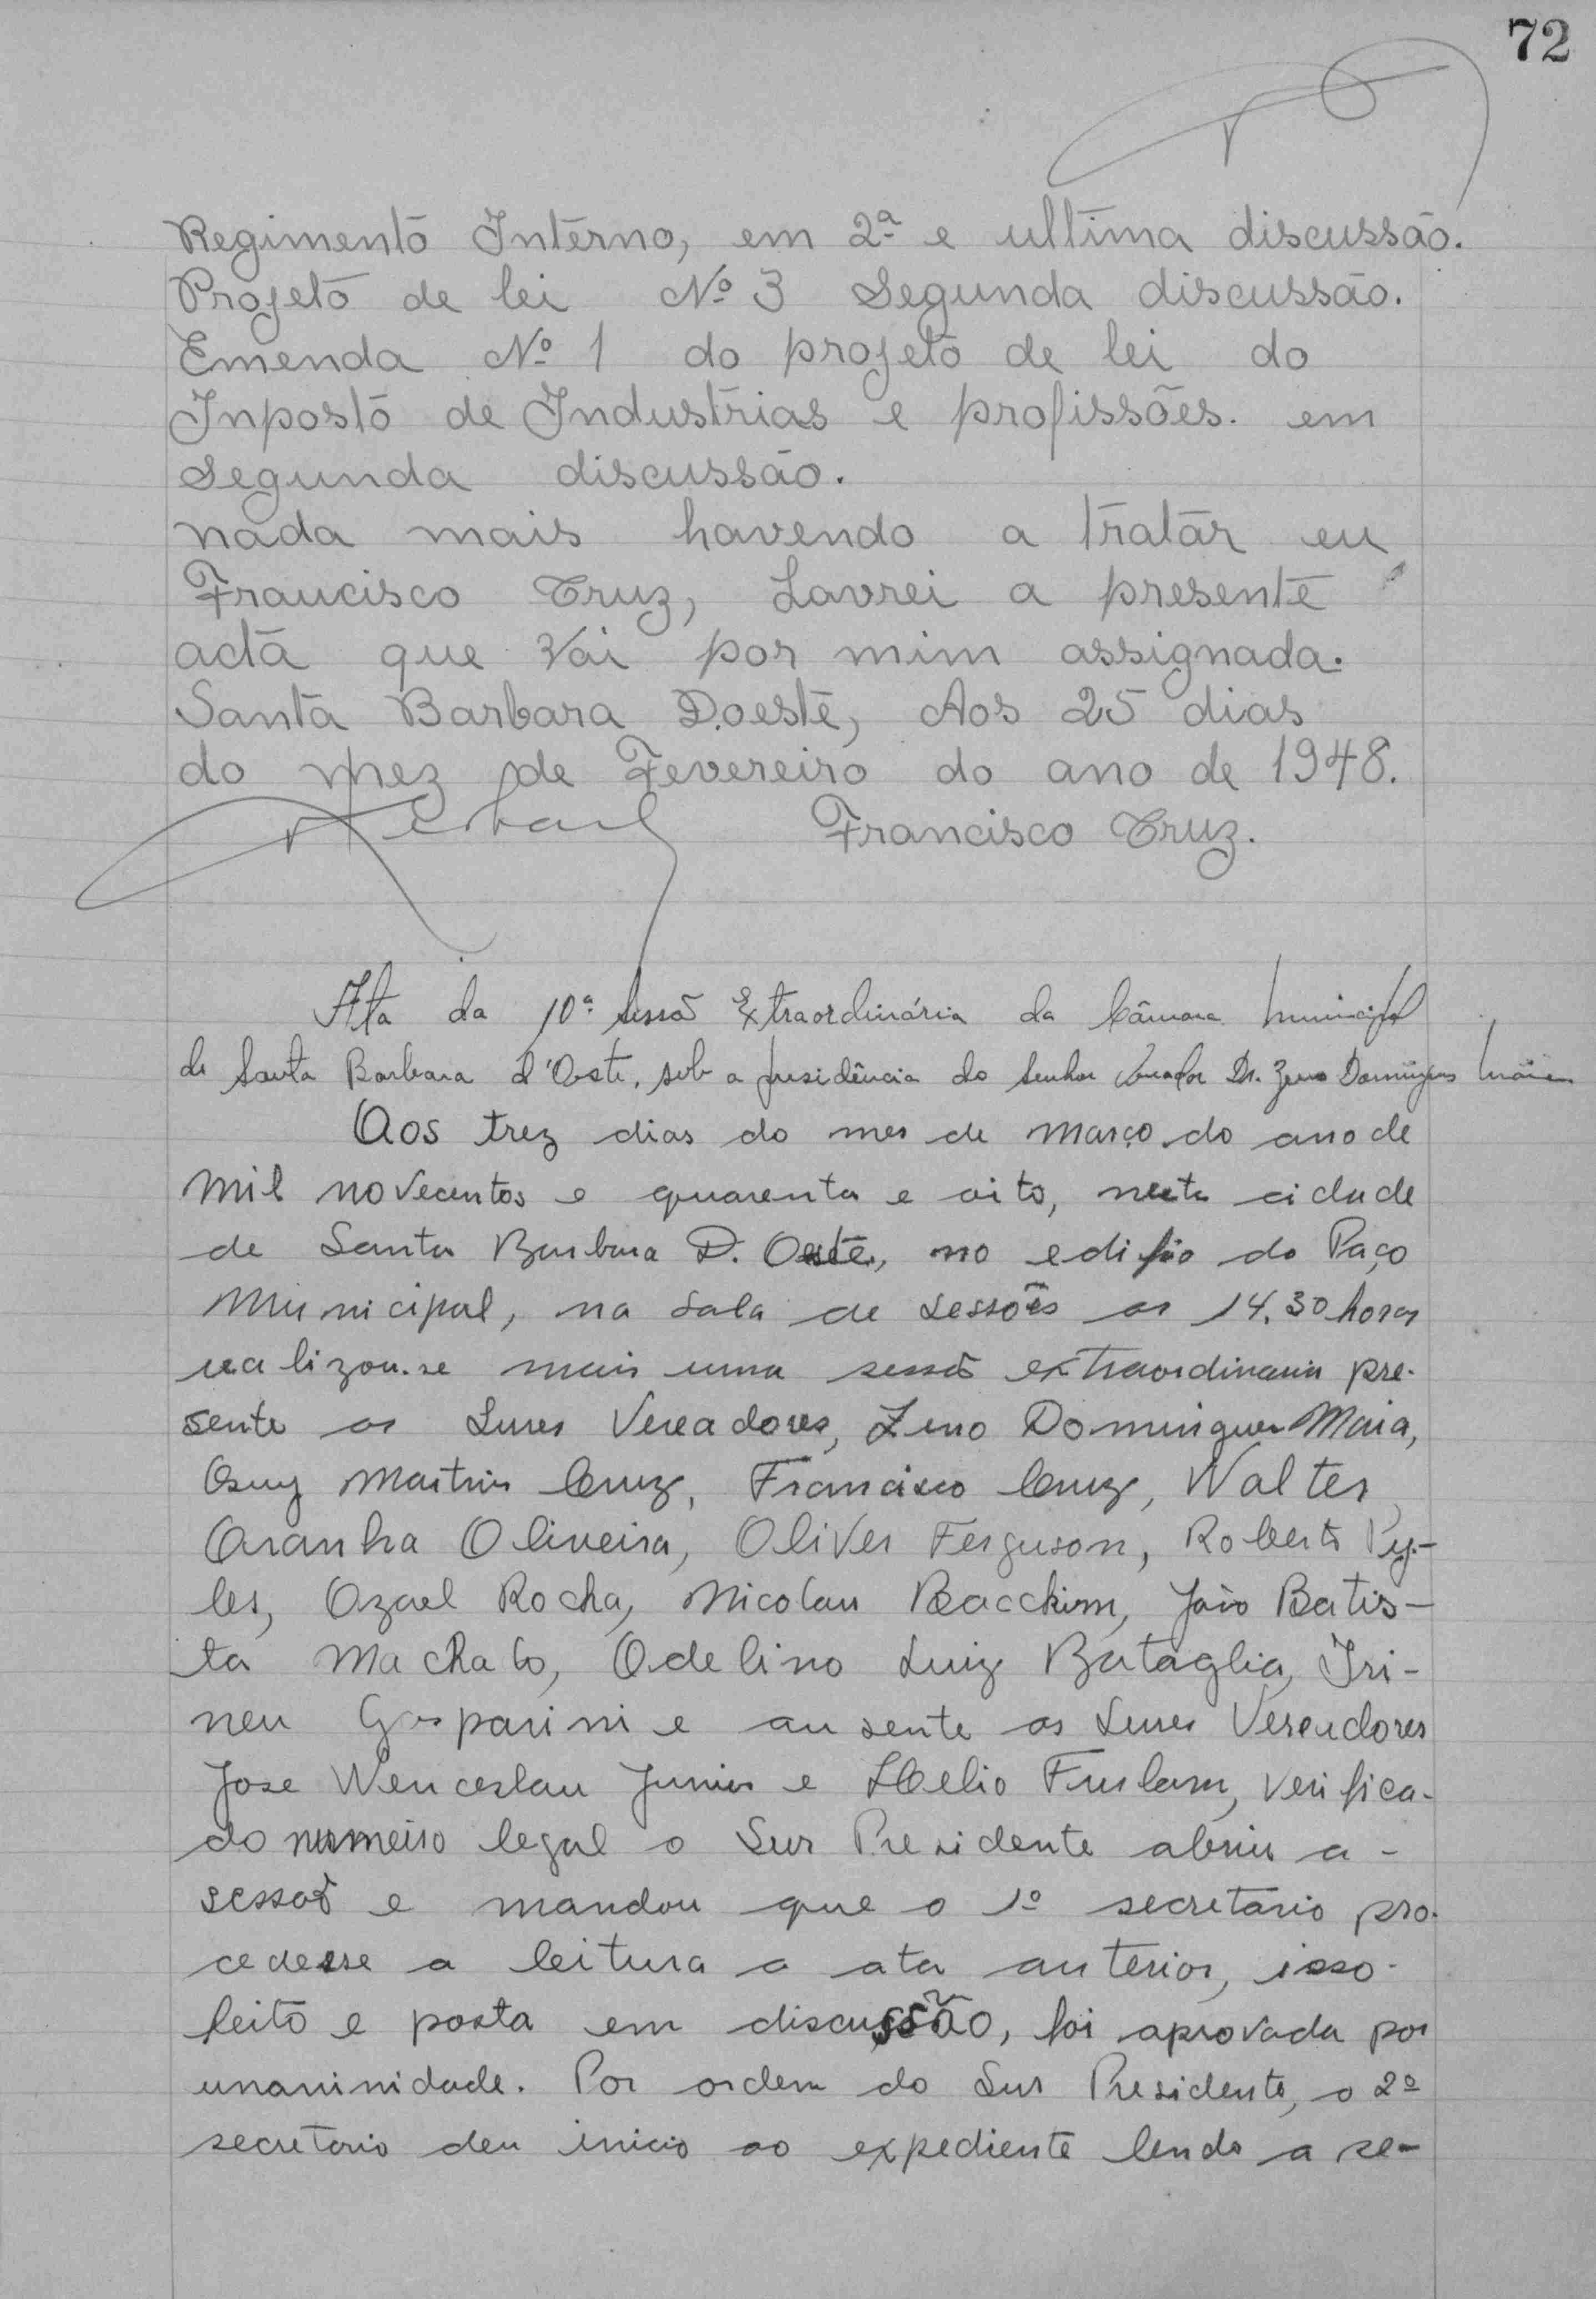 72
Regimento Interno, em 2ª e ultima discussão.
Projeto de lei Nº 3 Segunda discussão.
Emenda Nº 1 do projeto de lei do
Inposto de Industrias e profissões. em
Segunda discussão.
nada mais havendo a tratar eu
Francisco Cruz, Lavrei a presente
acta que vai por mim assignada.
Santa Barbara D.oeste, Aos 25 dias
do mez de Fevereiro do ano de 1948.
Francisco Cruz.
Ata da 10ª sessão Extraordinária da Câmara Municipal
de Santa Barbara d'Oeste, sob a presidência do Senhor Vereador Dr. Zeno Domingues Maia
Aos trez dias do mes de março do ano de
mil novecentos e quarenta e oito, nesta cidade
de Santa Barbara D. Oeste, no edifio do Paço
Municipal, na sala de sessões as 14.30 horas
realizou-se mais uma sessão extraordinaria pre-
sente os Snres Vereadores, Zeno Domingues Maia,
Osuy Martins Cruz, Francisco Cruz, Walter
Aranha Oliveira, Oliver Ferguson, Roberto Py-
les, Ozael Rocha, Nicolau Bacchim, João Batis-
ta Machado, Odelino Luiz Bataglia, Iri-
neu Gasparini e ausente os Snres Vereadores
Jose Wenceslau Junior e Helio Furlam, verifica-
do numeiro legal o Snr Presidente abriu a -
sessão e mandou que o 1º secretario pro-
cedesse a leitura a ata anterior, isso
feito e posta em discussão, foi aprovada por
unaninidade. Por ordem do Snr Presidente, o 2º
secretario deu inicio ao expediente lendo a se-